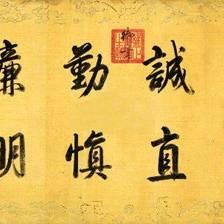 誠直
勤慎
廉明